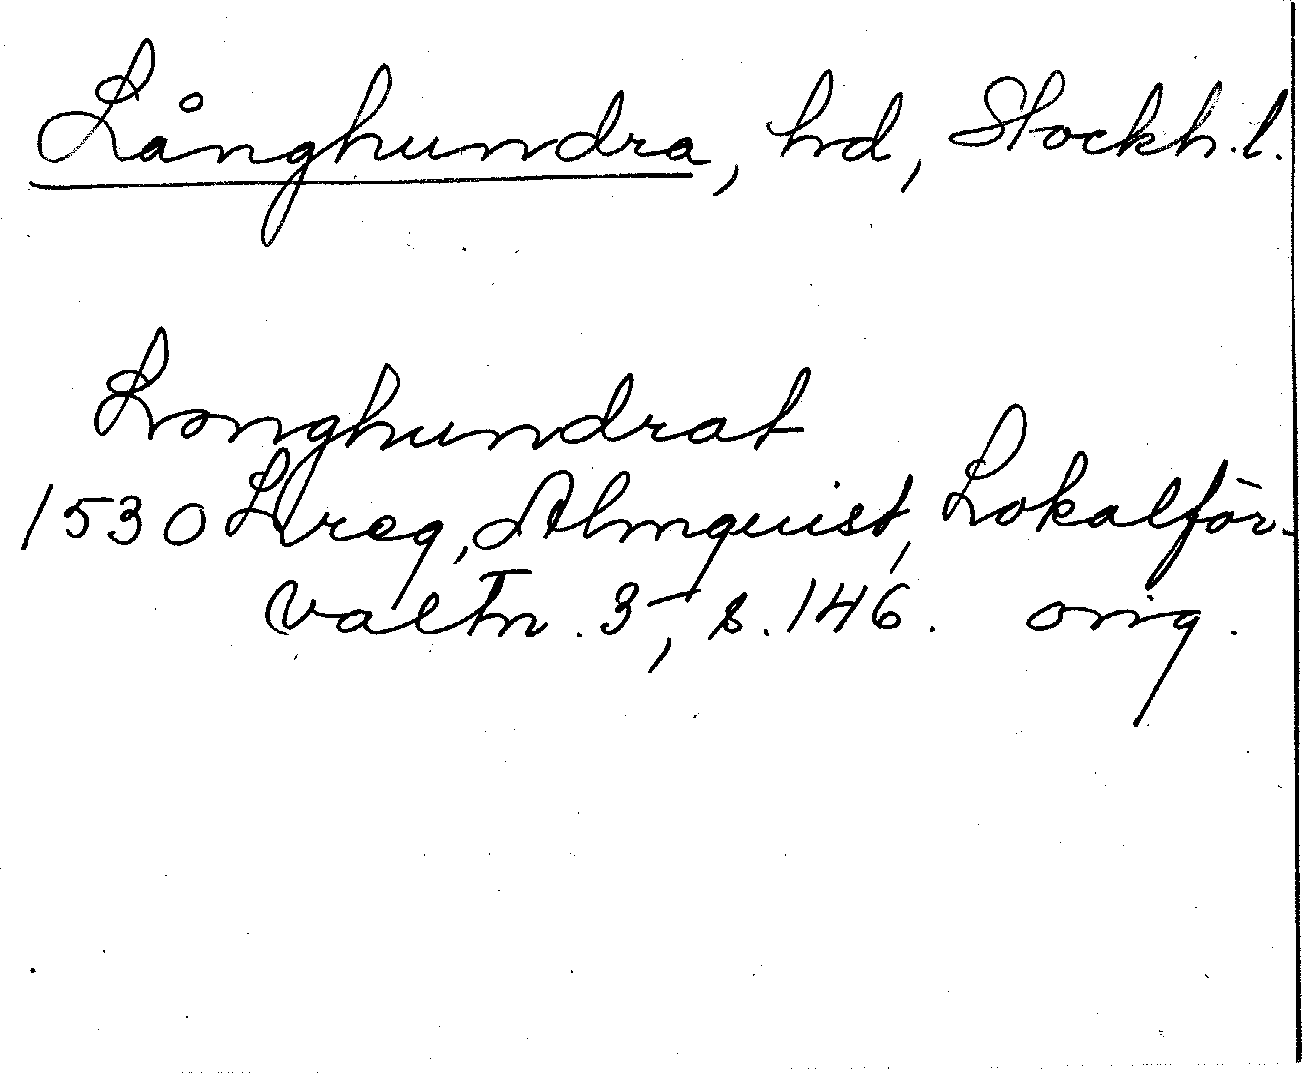 Långhundra, hd, Stockh.l.
Longhundrat
1530 Lreg, Almquist, Lokalför-
valtn. 3, s. 146. orig.